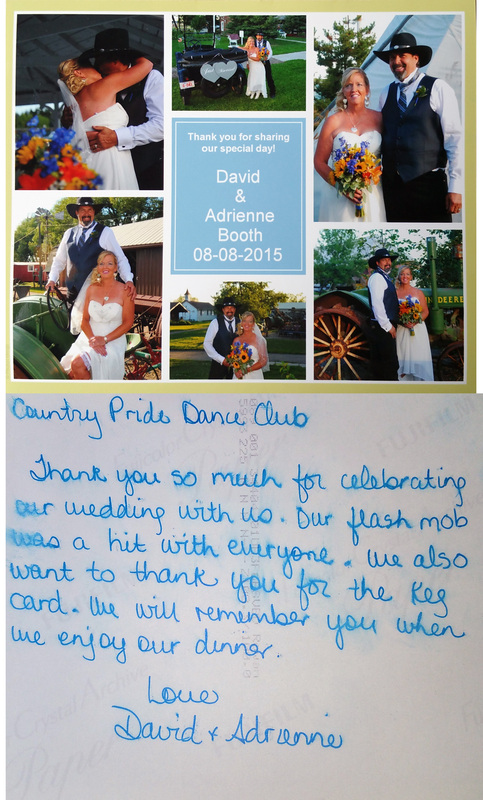 Thank you for sharing
our special day!
David
&
Adrienne
Booth
08-08-2015
DEERE
Country Pride Dance Club
Thank you so much for celebrating
our wedding with us. Our flash mob
was a hit with everyone. We also
want to thank you for the Keg
card. We will remember you when
we enjoy our dinner.
Love
David + Adrienne
FUJIFILM
Crystal Archive
Paper
FUJIFILM